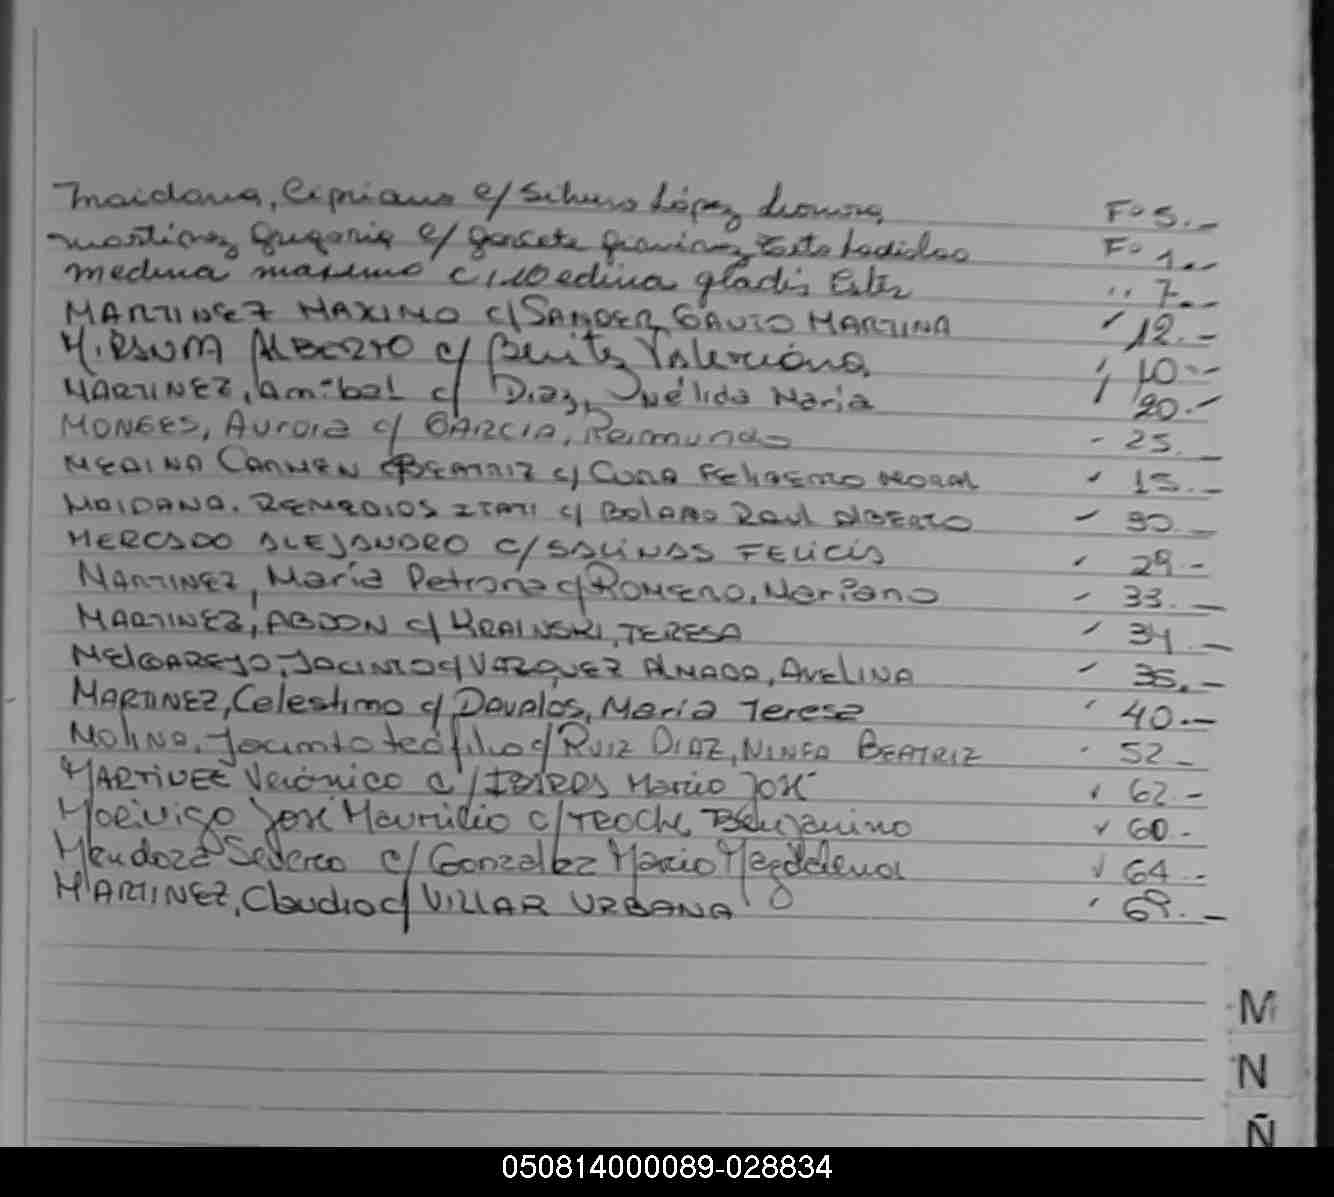 Maidana, Cipriano c/ Silvero López Leonora Fº 5.-
Martinez Gregoria c/ Fº 1.-
Medina Maximo c/ Medina Gladis Ester " 7.-
MARTINEZ MAXIMO c/ SANDER GAUTO MARTINA " 12.-
ALBERTO c/ Benitez Valeriana " 10.-
MARTINEZ, Anibal c/ Diaz, Nélida Maria " 20.-
MONGES, Aurora c/ GARCIA, Raimundo - 25.-
MEDINA CARMEN BEATRIZ c/ " 15.-
MAIDANA. REMEDIOS ITATI c/ BOLAÑO RAUL ALBERTO - 30.-
MERCADO ALEJANDRO c/ SALINAS FELICIA " 29.-
MARTINEZ, Maria Petrona c/ ROMERO, Mariano - 33.-
MARTINEZ, ABDON c/ KRAINSKI, TERESA " 34.-
MELGAREJO, JACINTO c/ VAZQUEZ ALMADA, AVELINA - 35.-
MARTINEZ, Celestino c/ Davalos, Maria Teresa " 40.-
MOLINA, Jacinto teófilo c/ RUIZ DIAZ, NINFA BEATRIZ " 52.-
MARTINEZ Verónica c/ Mario José " 62.-
Morinigo José Maurilio c/ Benjamina " 60.-
Mendoza c/ Gonzalez Maria Magdalena " 64.-
MARTINEZ, Claudio c/ VILLAR URBANA " 69.-
M
N
Ñ
050814000089-028834